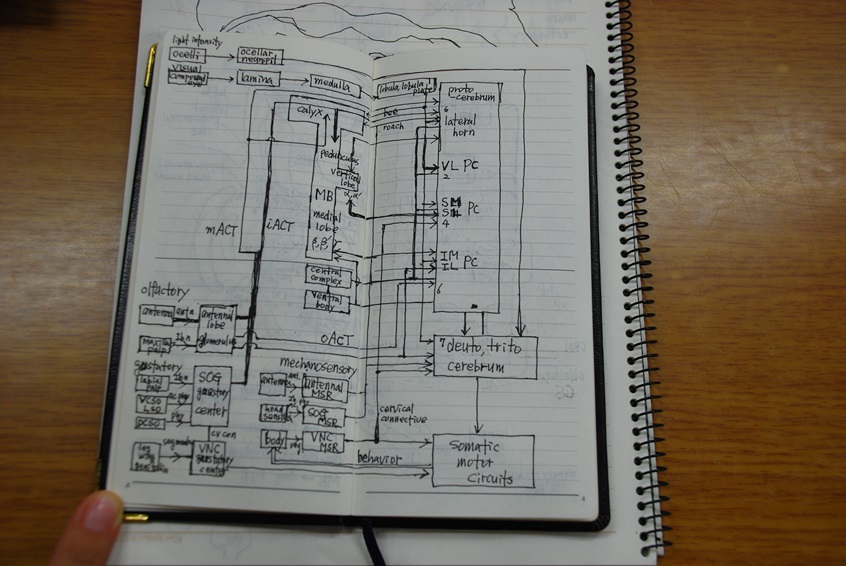 light intensity
ocelli
ocellar neuropil
visual
compound eye
lamina
medulla
lobula, lobula plate
proto
-cerebrum
calyx
bee
roach
6
lateral
horn
pedunculus
vertical
lobe
α, α'
VL PC
2
MB
medial
lobe
β, β', γ
SM
SL PC
4
mACT
iACT
IM
IL PC
6
central
complex
ventral
body
olfactory
antenna
ant n
antennal
lobe
glomerulus
maxillary
palp
lb n
oACT
7 deuto, trito
cerebrum
gustatory
labial
palp
lb n
SOG
gustatory
center
mechanosensory
antenna
antennal
MSR
head
sensilla
SOG
MSR
cervical
connective
body
VNC
MSR
cv con
leg
wing
VNC
gustatory
center
behavior
Somatic
motor
Circuits